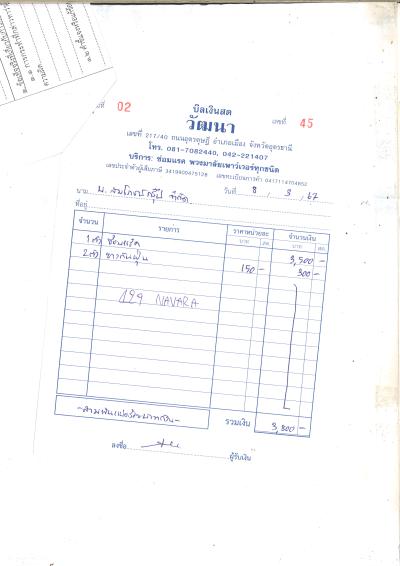 ที่ 02
บิลเงินสด
วัฒนา
เลขที่ 45
เลขที่ 217/40 ถนนอุดรดุษฎี อำเภอเมือง จังหวัดอุดรธานี
โทร. 081-7082440, 042-221407
บริการ: ซ่อมแรค พวงมาลัยเพาเวอร์ทุกชนิด
เลขประจำตัวผู้เสียภาษี 3419900475126 เลขทะเบียนการค้า 0417114704652
นาม จำกัด วันที่ 8 / 3 / 67
ที่อยู่
จำนวน รายการ ราคาหน่วยละ จำนวนเงิน
บาท สต. บาท สต.
1 ตัว ซ่อมแร็ค 3,500 -
2 ตัว ยางกันฝุ่น 150 - 300 -
129 NAVARA
-สามพันแปดร้อยบาทถ้วน- รวมเงิน 3,800 -
ลงชื่อ ผู้รับเงิน